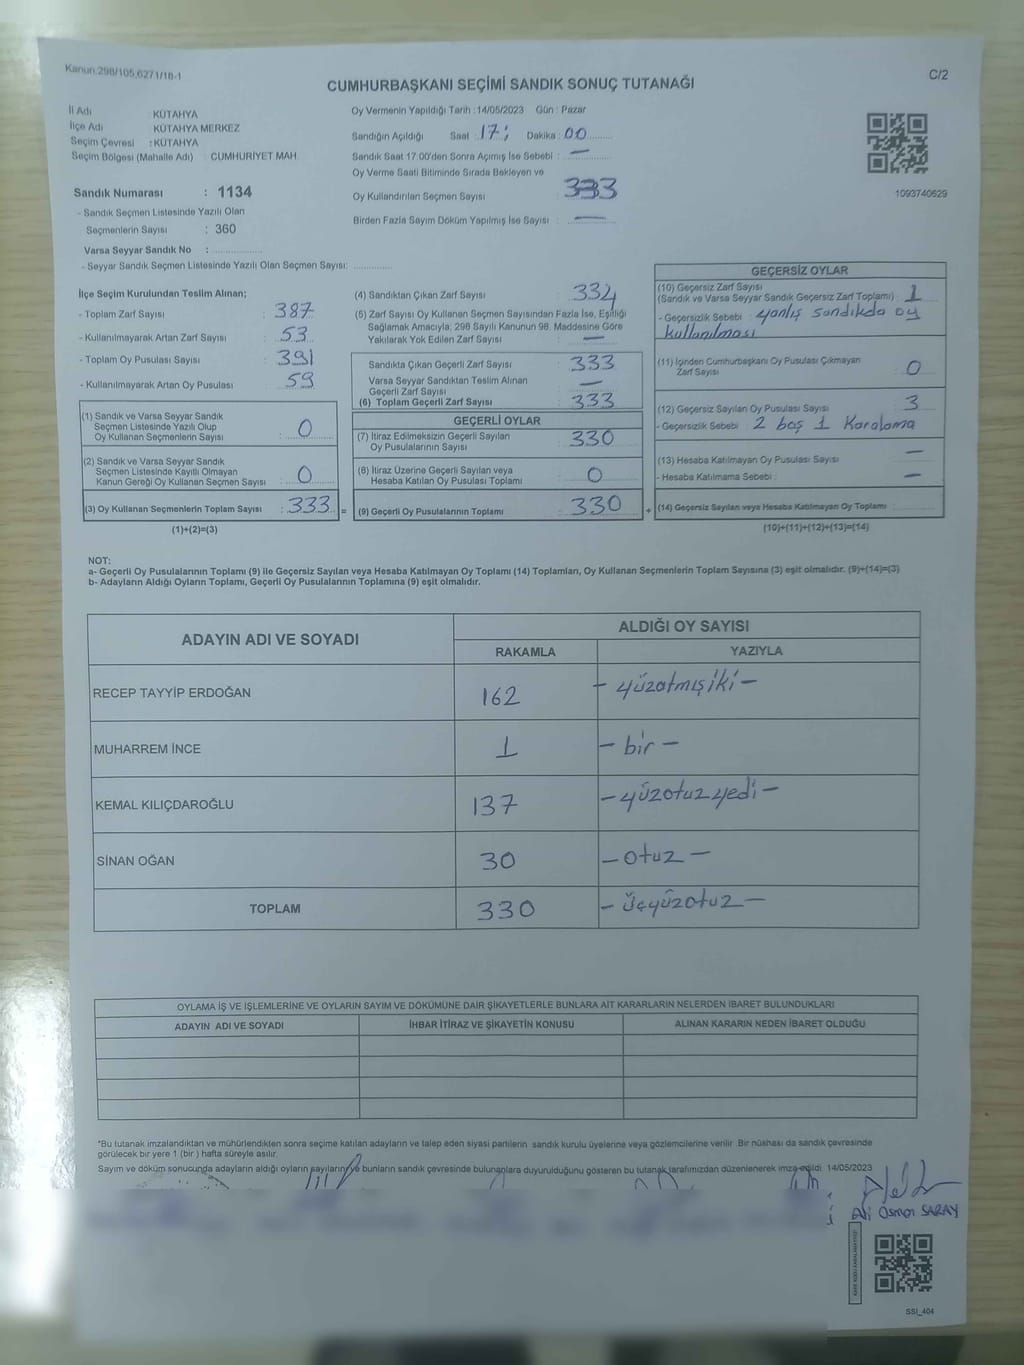 Kanun:298/105,6271/18-1
C/2
CUMHURBAŞKANI SEÇİMİ SANDIK SONUÇ TUTANAĞI
İl Adı KÜTAHYA
İlçe Adı KÜTAHYA MERKEZ
Seçim Çevresi : KÜTAHYA
Seçim Bölgesi (Mahalle Adı) CUMHURİYET MAH.
Sandık Numarası : 1134
- Sandık Seçmen Listesinde Yazılı Olan
Seçmenlerin Sayısı : 360
Varsa Seyyar Sandık No :
- Seyyar Sandık Seçmen Listesinde Yazılı Olan Seçmen Sayısı:
Oy Vermenin Yapıldığı Tarih : 14/05/2023 Gün : Pazar
Sandığın Açıldığı Saat : 17: Dakika : 00
Sandık Saat 17:00'den Sonra Açımış İse Sebebi : —
Oy Verme Saati Bitiminde Sırada Bekleyen ve
Oy Kullandırılan Seçmen Sayısı : 333
Birden Fazla Sayım Döküm Yapılmış İse Sayısı : —
1093740629
İlçe Seçim Kurulundan Teslim Alınan;
- Toplam Zarf Sayısı : 387
- Kullanılmayarak Artan Zarf Sayısı : 53
- Toplam Oy Pusulası Sayısı : 391
- Kullanılmayarak Artan Oy Pusulası : 59
(1) Sandık ve Varsa Seyyar Sandık
Seçmen Listesinde Yazılı Olup
Oy Kullanan Seçmenlerin Sayısı : 0
(2) Sandık ve Varsa Seyyar Sandık
Seçmen Listesinde Kayıtlı Olmayan
Kanun Gereği Oy Kullanan Seçmen Sayısı : 0
(3) Oy Kullanan Seçmenlerin Toplam Sayısı : 333 =
(1)+(2)=(3)
(4) Sandıktan Çıkan Zarf Sayısı : 334
(5) Zarf Sayısı Oy Kullanan Seçmen Sayısından Fazla İse, Eşitliği
Sağlamak Amacıyla; 298 Sayılı Kanunun 98. Maddesine Göre
Yakılarak Yok Edilen Zarf Sayısı : —
Sandıkta Çıkan Geçerli Zarf Sayısı : 333
Varsa Seyyar Sandıktan Teslim Alınan
Geçerli Zarf Sayısı : —
(6) Toplam Geçerli Zarf Sayısı : 333
GEÇERLİ OYLAR
(7) İtiraz Edilmeksizin Geçerli Sayılan
Oy Pusulalarının Sayısı : 330
(8) İtiraz Üzerine Geçerli Sayılan veya
Hesaba Katılan Oy Pusulası Toplamı : 0
(9) Geçerli Oy Pusulalarının Toplamı : 330 +
GEÇERSİZ OYLAR
(10) Geçersiz Zarf Sayısı
(Sandık ve Varsa Seyyar Sandık Geçersiz Zarf Toplamı) : 1
- Geçersizlik Sebebi : yanlış sandıkda oy
kullanılması
(11) İçinden Cumhurbaşkanı Oy Pusulası Çıkmayan
Zarf Sayısı : 0
(12) Geçersiz Sayılan Oy Pusulası Sayısı : 3
- Geçersizlik Sebebi : 2 boş 1 Karalama
(13) Hesaba Katılmayan Oy Pusulası Sayısı : —
- Hesaba Katılmama Sebebi : —
(14) Geçersiz Sayılan veya Hesaba Katılmayan Oy Toplamı
(10)+(11)+(12)+(13)=(14)
NOT:
a- Geçerli Oy Pusulalarının Toplamı (9) ile Geçersiz Sayılan veya Hesaba Katılmayan Oy Toplamı (14) Toplamları, Oy Kullanan Seçmenlerin Toplam Sayısına (3) eşit olmalıdır. (9)+(14)=(3)
b- Adayların Aldığı Oyların Toplamı, Geçerli Oy Pusulalarının Toplamına (9) eşit olmalıdır.
ADAYIN ADI VE SOYADI ALDIĞI OY SAYISI
RAKAMLA YAZIYLA
RECEP TAYYİP ERDOĞAN 162 — yüzatmışiki —
MUHARREM İNCE 1 — bir —
KEMAL KILIÇDAROĞLU 137 — yüzotuzyedi —
SİNAN OĞAN 30 — otuz —
TOPLAM 330 — üçyüzotuz —
OYLAMA İŞ VE İŞLEMLERİNE VE OYLARIN SAYIM VE DÖKÜMÜNE DAİR ŞİKAYETLERLE BUNLARA AİT KARARLARIN NELERDEN İBARET BULUNDUKLARI
ADAYIN ADI VE SOYADI İHBAR İTİRAZ VE ŞİKAYETİN KONUSU ALINAN KARARIN NEDEN İBARET OLDUĞU
*Bu tutanak imzalandıktan ve mühürlendikten sonra seçime katılan adayların ve talep eden siyasi partilerin sandık kurulu üyelerine veya gözlemcilerine verilir. Bir nüshası da sandık çevresinde
görülecek bir yere 1 (bir ) hafta süreyle asılır.
Sayım ve döküm sonucunda adayların aldığı oyların sayılarını ve bunların sandık çevresinde bulunanlara duyurulduğunu gösteren bu tutanak tarafımızdan düzenlenerek imza edildi. 14/05/2023
Ali Osman SARAY
SSI_404